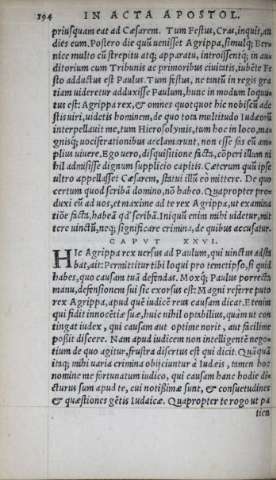 394 IN ACTA APOSTOL.
priusquam eat ad Cæsarem. Tum Festus, Cras, inquit, au
dies eum. Postero die quũ uenisset Agrippa, simulq; Ber
nice multo cũ strepitu atq; apparatu, introissentq; in au
ditorium cum Tribunis ac primoribus ciuitatis, iubẽte Fe
sto adductus est Paulus. Tum festus, ne tenũ in regis gra
tiam uideretur adduxisse Paulum, hunc in modum loquu
tus est: Agrippa rex, & omnes quotquot hic nobiscũ ade
stis uiri, uidetis hominem, de quo tota multitudo Iudæorũ
interpellauit me, tum Hierosolymis, tum hoc in loco, ma
gnisq; uociferationibus acclamarunt, non esse fas eũ am-
plius uiuere. Ego uero, disquisitione facta, cõperi illum ni
hil admisisse dignum supplicio capitis. Cæterum quũ ipse
ultro appellasset Cæsarem, statui illũ eò mittere. De quo
certum quod scribã domino, nõ habeo. Quapropter pro
duxi eũ ad uos, et maxime ad te rex Agrippa, ut examina
tiõe facta, habeã qd' scribã. Iniquũ enim mihi uidetur, mit
tere uinctũ, neq; significare crimina, de quibus accusatur.
CAPVT XXVI.
HIc Agrippa rex uersus ad Paulum, qui uinctus adsta
bat, ait: Permittitur tibi loqui pro temetipso, si quid
habes, quo causam tuã defendas. Moxq; Paulus porrecta
manu, defensionem sui sic exorsus est: Magni referre puto
rex Agrippa, apud quẽ iudicẽ reus causam dicat. Etenim
qui fidit innocẽtiæ suæ, huic nihil optabilius, quàm ut con
tingat iudex, qui causam aut optime norit, aut facillime
possit discere. Nam apud iudicem non intelligentẽ nego-
tium de quo agitur, frustra disertus est qui dicit. Quãquã
itaq; mihi uaria crimina obijciuntur à Iudæis, tamen hoc
nomine me fortunatum iudico, qui causam hanc hodie di-
cturus sum apud te, cui notissimæ sunt, & consuetudines
& quæstiones gẽtis Iudaicæ. Quapropter te rogo ut pa
tien